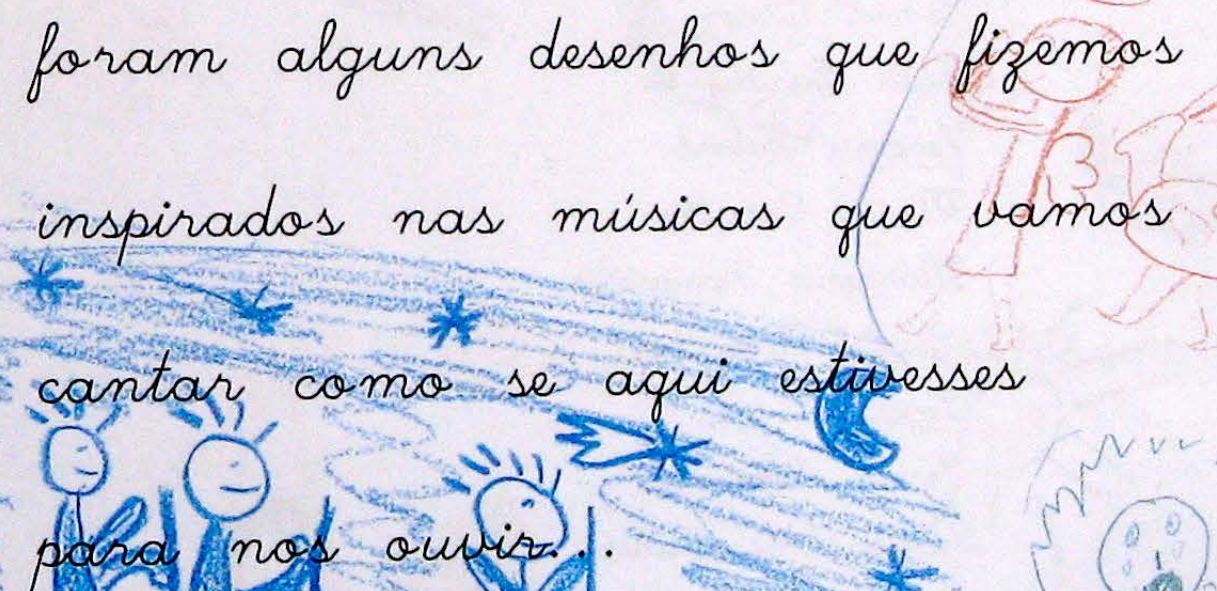 foram alguns desenhos que fizemos
inspirados nas músicas que vamos
cantar como se aqui estivesses
para nos ouvir...